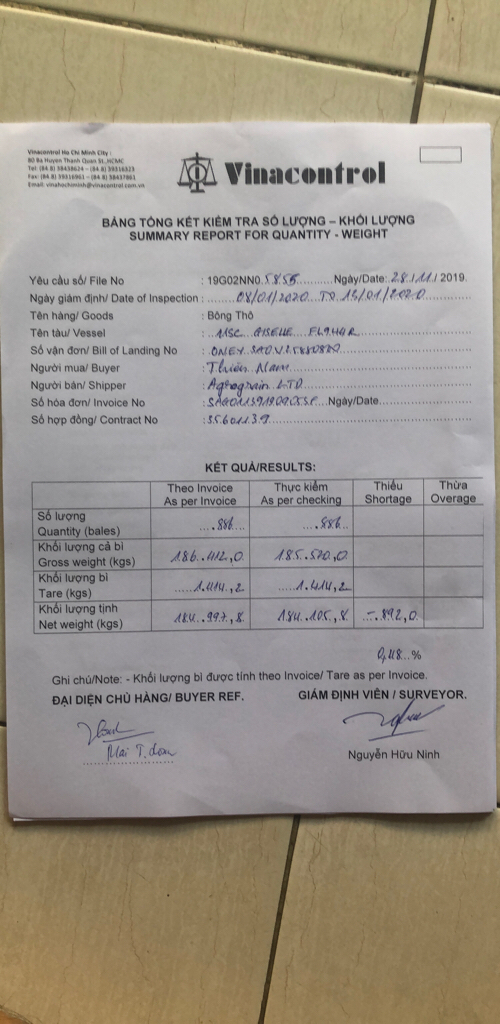 Vinacontrol Ho Chi Minh City :
80 Ba Huyen Thanh Quan St.,HCMC
Tel: (84 8) 38438624 – (84 8) 39316323
Fax: (84 8) 39316961 – (84 8) 38437861
Email: vinahochiminh@vinacontrol.com.vn
Vinacontrol
BẢNG TỔNG KẾT KIỂM TRA SỐ LƯỢNG – KHỐI LƯỢNG
SUMMARY REPORT FOR QUANTITY - WEIGHT
Yêu cầu số/ File No : 19G02NN0.5855 Ngày/Date: 28/11/ 2019.
Ngày giám định/ Date of Inspection : 08/01/2020 TO 13/01/2020
Tên hàng/ Goods : Bông Thô
Tên tàu/ Vessel : MSC GISELLE
Số vận đơn/ Bill of Landing No :
Người mua/ Buyer : Thiên Nam
Người bán/ Shipper : Agrograin LTD
Số hóa đơn/ Invoice No : Ngày/Date
Số hợp đồng/ Contract No : S56011.39
KẾT QUẢ/RESULTS:
Theo Invoice As per Invoice Thực kiểm As per checking Thiếu Shortage Thừa Overage
Số lượng
Quantity (bales) 886 886
Khối lượng cả bì
Gross weight (kgs) 186.412,0 185.520,0
Khối lượng bì
Tare (kgs) 1.414,2 1.414,2
Khối lượng tịnh
Net weight (kgs) 184.997,8 184.105,8 -892,0
0,48 %
Ghi chú/Note: - Khối lượng bì được tính theo Invoice/ Tare as per Invoice.
ĐẠI DIỆN CHỦ HÀNG/ BUYER REF. GIÁM ĐỊNH VIÊN / SURVEYOR.
Mai T.
Nguyễn Hữu Ninh